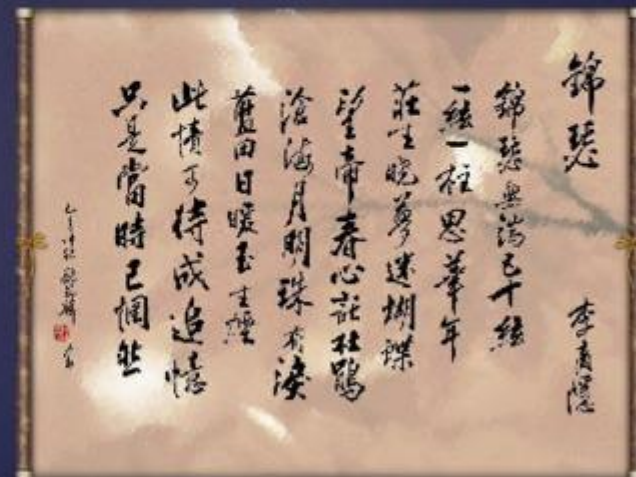 錦瑟
李商隱
錦瑟無端五十絃
一絃一柱思華年
莊生曉夢迷蝴蝶
望帝春心託杜鵑
滄海月明珠有淚
藍田日暖玉生煙
此情可待成追憶
只是當時已惘然